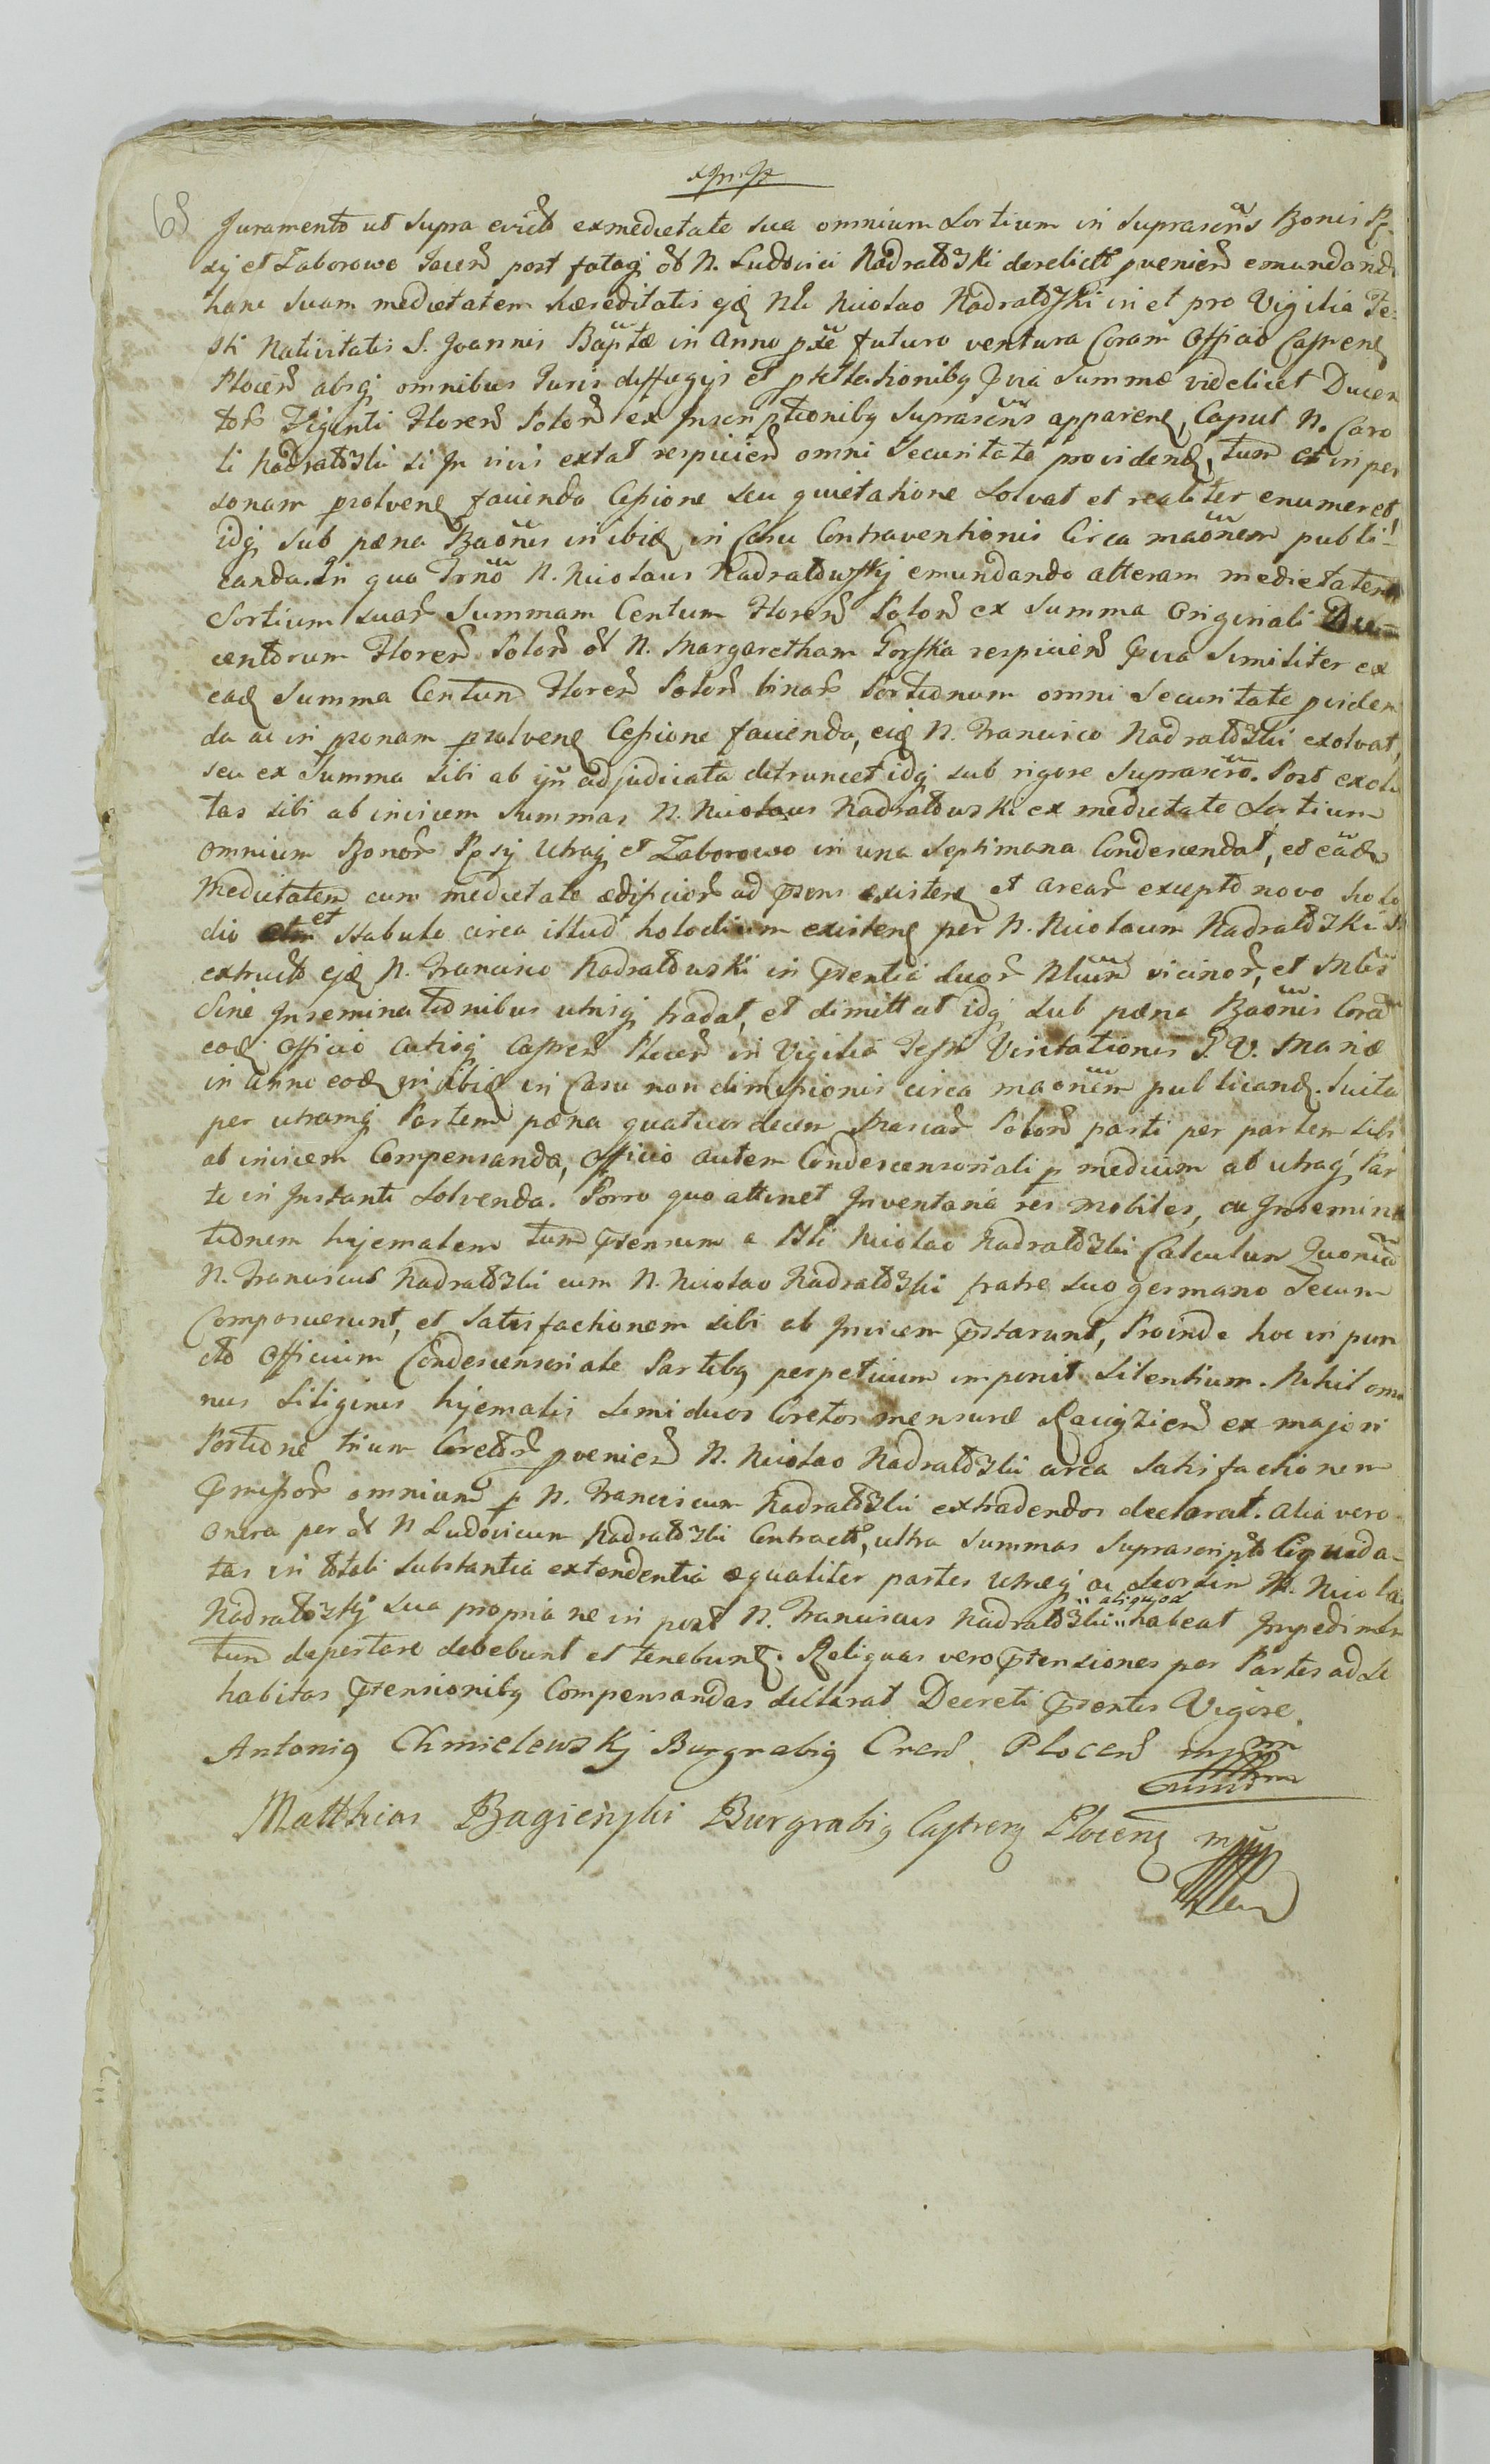 68
Juramento ut supra evicto ex medietate sua omnium Sortium in suprascris Bonis
et Zaborowo jacen post fatag ol N. Ludovici Nadratowski derelicto pvenien emundand
hanc suam medietatem hæreditatis ejq Nli Nicolao Nadratowski in et pro Vigilia Fe-
sti Nativitatis S. Joannis Baptæ in Anno pxe futuro ventura Coram Officio Castrens
Plocen absq omnibus Juris diffugijs et ptestationibq summæ videlicet Ducen
tor Viginti Floren Polon ex Inscriptionibq Suprascris apparens, Caput N. Caro
li Nadratowski si in vivis extat respicien omni Securitate providend, tum et in per
sonam psolvens facienda Cessione seu quietatione solvat et realiter enumeret
idq sub pæna Baonis inibiq in Casu Contraventionis Circa maonem publi-
canda. In quo Trno N. Nicolaus Nadratowskj emundando alteram medietatem
Sortium suar Summam Centum Floren Polon ex Summa Originali Du-
centorum Floren Polon ol N. Margaretham Gorska respicien similiter ex
eaq Summa Centum Floren Polon binar Portionum omni Securitate pviden
da ac in psonam psolvens Cessione facienda, eiq N. Francisco Nadratowski exolvat,
seu ex Summa sibi ab ijs adjudicata detruncet idq sub rigore suprascro. Post exolu
tas sibi ab invicem Summas N. Nicolaus Nadratowski ex medietate Sortium
omnium Bonor utraq et Zaborowo in una Septimana Condescendat, et eaq
Medietatem cum medietate ædificior ad psens existens et arear excepto novo holo
dio et stabulo circa illud holodium existens per N. Nicolaum Nadratowski
extructo ejq N. Francisco Nadratowski in psentia duor Nlium vicinor, et Mlis
Sine Inseminationibus utrisq tradat, et dimittat idq sub pæna Baonis Cora
eoq Officio Castren Plocen in Vigilia Festi Visitationis B. V. Mariæ
in anno eoq inibiq in Casu non dimissionis circa maonem publicand. Luita
per utramq Partem pæna quatuordecim Marcar Polon parti per partem sibi
ab invicem Compensanda, Officio autem Condescensoriali p medium ab utraq Par
te in Instanti Solvenda. Porro quo attinet Inventaria res mobiles, ac Insemina
tionem hyemalem tum psensum a Nli Nicolao Nadratowski Calculum Quonia
N. Franciscus Nadratowski cum N. Nicolao Nadratowski fratre suo germano Secum
Composuerunt, et Satisfactionem sibi ab invicem pstarunt, Proinde hoc in pun
cto Officium Condescensoriale Partibq perpetuum imponit Silentium. Nihilomi
nus Siliginis hyemalis Semiduos Coretos mensuræ ex majori
Portione trium Coretor pvenien N. Nicolao Nadratowski circa Satisfactionem
pmissor omnium p N. Franciscum Nadratowski extradendos declarat. Alia vero
onera per ol N Ludovicum Nadratowski Contracta, ultra Summas Suprascripto Liquida-
tas in totali substantia extendentia æqualiter partes utræq ac N. Nicola
Nadratowskj sua propria ne in post N. Franciscus Nadratowski " aliquod " habeat Impedimen
tum deportare debebunt et tenebunt. Reliquas vero ptensiones per Partes ad se
habitas ptensionibq Compensandas declarat Decreti psentis Vigore.
Antonig Chmielewskj Burgrabig Cren. Plocen mpp
Matthias Bagieński Burgrabig Castrens Plocens mpp